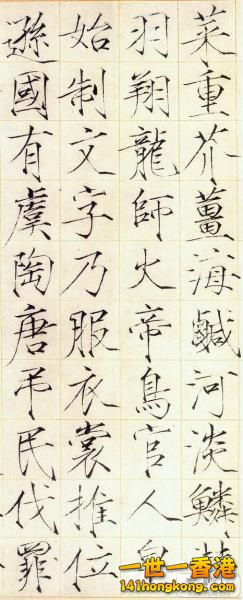 菜重芥薑海鹹河淡鱗
羽翔龍師火帝鳥官人皇
始制文字乃服衣裳推位
遜國有虞陶唐弔民伐罪
一世一香港
141hongkong.com